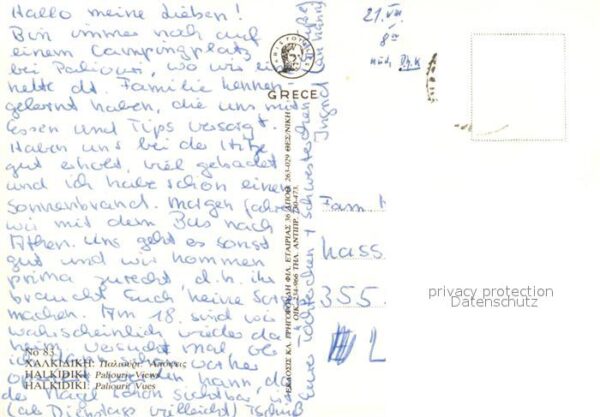 Hallo meine Lieben!
Bin immer noch auf
einem Campingplatz
bei Paliouri, wo wir eine
nette dt. Familie kennen-
gelernt haben, die uns mit
Essen und Tips versorgt.
Haben uns bei der Hitze
gut erholt, viel gebadet
und ich habe schon einen
Sonnenbrand. Morgen fahren
wir mit dem Bus nach
Athen. Uns geht es sonst
gut und wir kommen
prima zurecht d.h. ihr
braucht Euch keine Sorgen
machen. Am 18. sind wir
wahrscheinlich wieder da
heim versucht mal
vorher
kann, da
der Vogel schon sichtbar
(ab Dienstags vielleicht) Tschüß
Eure Töchterchen + Schwesterchen
Ingrid
21. VII
8°
GRECE
ΕΚΔΟΣΕΙΣ ΚΛ. ΓΡΗΓΟΡΙΑΔΗ ΦΙΛ. ΕΤΑΙΡΙΑΣ 36 ΔΙΠΟΘ. 263-029 ΘΕΣ/ΝΙΚΗ
ΟΙΚ. 234-966 ΤΗΛ. ΑΝΤΙΠΡ. 230-473.
Fam
Kass
355
privacy protection
Datenschutz
No 83
ΧΑΛΚΙΔΙΚΗ: Παλιούρι. Απόψεις
HALKIDIKI: Paliouri Views
HALKIDIKI: Paliouri Vues